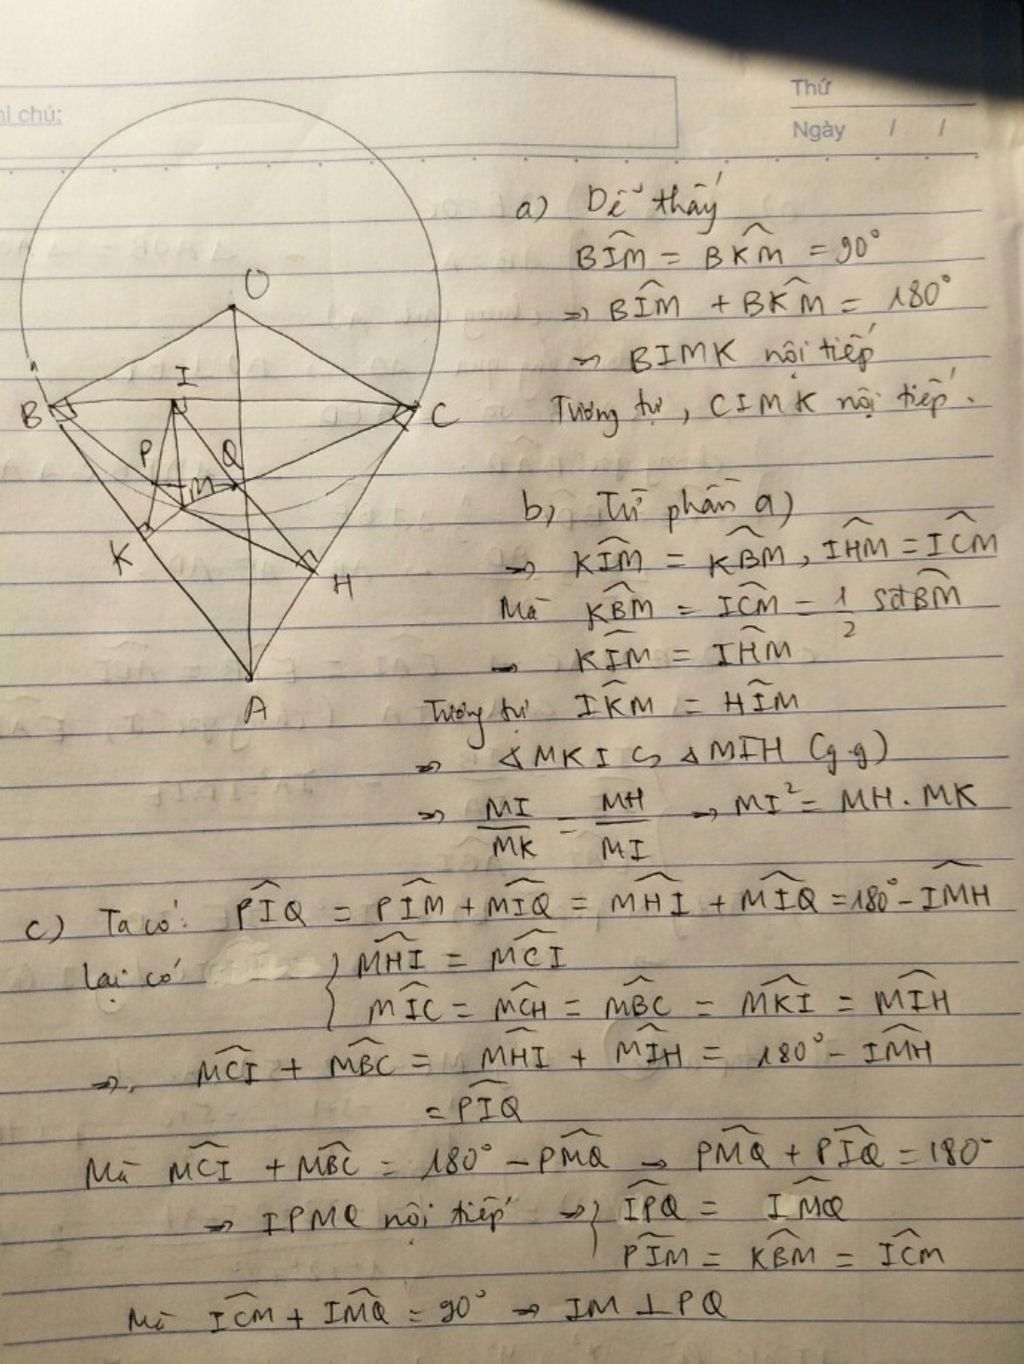 hi chú:
Thứ
Ngày / /
O
B
I
C
P
Q
M
K
H
A
a) Dễ thấy
BÎM = BK̂M = 90°
⇒ BÎM + BK̂M = 180°
⇒ BIMK nội tiếp
Tương tự, CIMK nội tiếp.
b, Từ phần a)
⇒ KÎM = KB̂M, IĤM = IĈM
Mà KB̂M = IĈM = 1/2 Sđ BM
⇒ KÎM = IĤM
Tương tự IK̂M = HÎM
⇒ ΔMKI ∽ ΔMIH (g.g)
⇒ MI/MK = MH/MI ⇒ MI² = MH . MK
c) Ta có: PÎQ = PÎM + MÎQ = MĤI + MÎQ = 180° - IM̂H
lại có { MĤI = MĈI
MÎC = MĈH = MB̂C = MK̂I = MÎH
⇒ MĈI + MB̂C = MĤI + MÎH = 180° - IM̂H
= PÎQ
Mà MĈI + MB̂C = 180° - PM̂Q ⇒ PM̂Q + PÎQ = 180°
⇒ IPMQ nội tiếp ⇒ { IP̂Q = IM̂Q
PÎM = KB̂M = IĈM
Mà IĈM + IM̂Q = 90° ⇒ IM ⊥ PQ